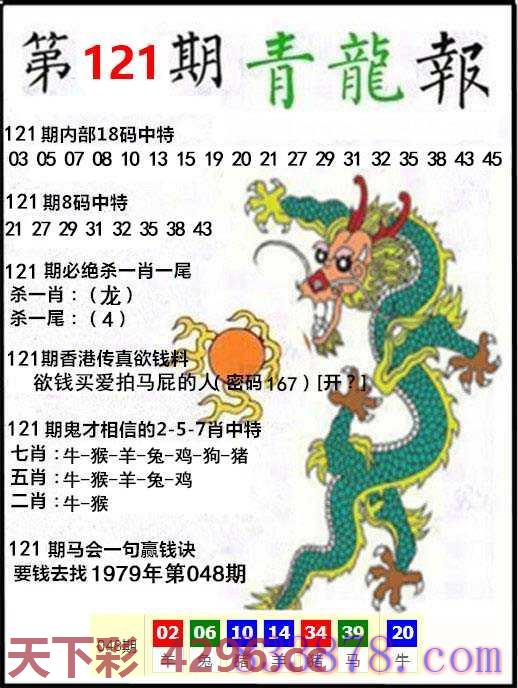 第121期青龍報
121期内部18码中特
03 05 07 08 10 13 15 19 20 21 27 29 31 32 35 38 43 45
121期8码中特
21 27 29 31 32 35 38 43
121期必绝杀一肖一尾
杀一肖：（龙）
杀一尾：（4）
121期香港传真欲钱料
欲钱买爱拍马屁的人（密码167）[开？]
121期鬼才相信的2-5-7肖中特
七肖：牛-猴-羊-兔-鸡-狗-猪
五肖：牛-猴-羊-兔-鸡
二肖：牛-猴
121期马会一句赢钱诀
要钱去找1979年第048期
048期 02 06 10 14 34 39 20
羊 兔 猪 羊 猪 马 牛
天下彩 4296.cc
878.com